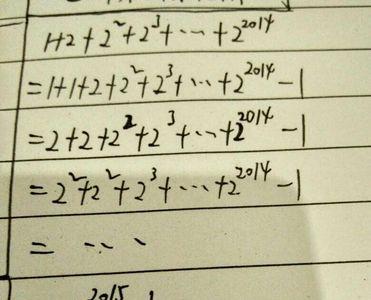 1+2+2²+2³+…+2²⁰¹⁴
=1+1+2+2²+2³+…+2²⁰¹⁴-1
=2+2+2²+2³+…+2²⁰¹⁴-1
=2²+2²+2³+…+2²⁰¹⁴-1
= …
2015